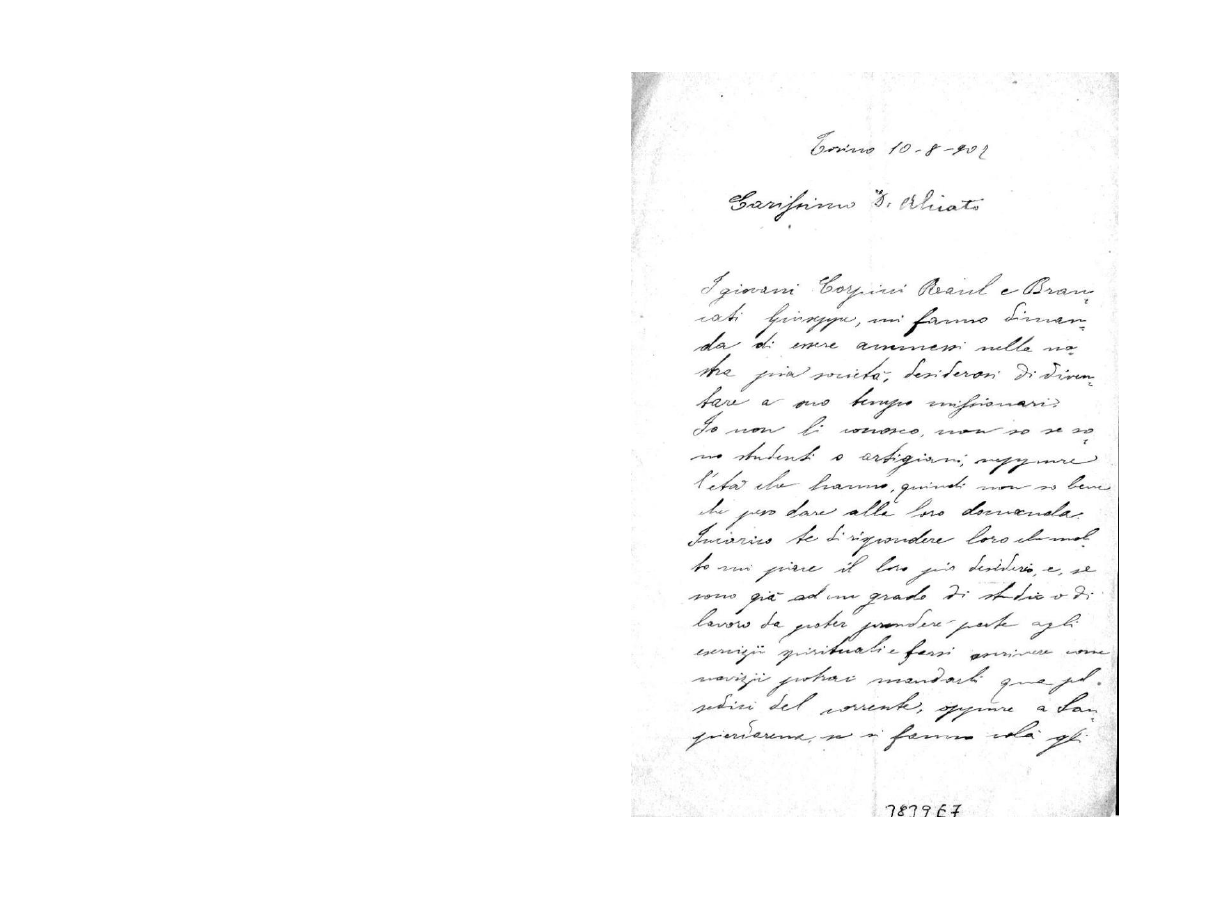 Torino 10-8-902
Carissimo D. Alciato
I giovani Corpini Raoul e Bran=
cati Giuseppe, mi fanno diman=
da di essere ammessi nella no=
stra pia società, desiderosi di diven=
tare a suo tempo missionari.
Io non li conosco, non so se so=
no studenti o artigiani, neppure
l'età che hanno, quindi non so bene
che peso dare alla loro domanda.
Incarico te di rispondere loro che mol=
to mi piace il loro pio desiderio, e, se
sono già ad un grado di studio o di
lavoro da poter prendere parte agli
esercizii spirituali e farsi ascrivere come
novizii potrai mandarli qua pel
sedici del corrente, oppure a San=
pierdarena, se si fanno colà gli